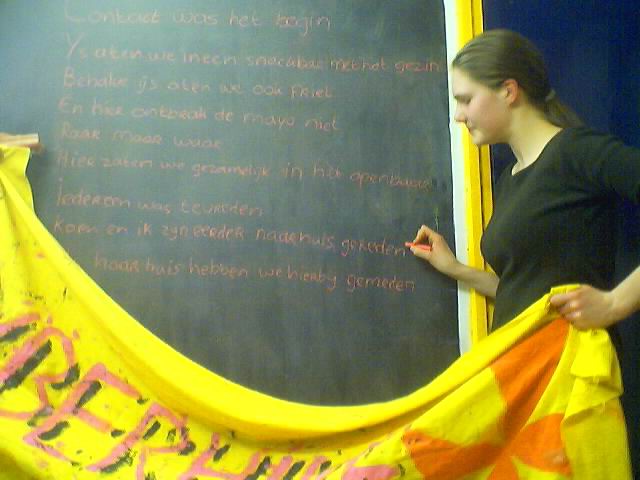 Contact was het begin
Ys aten we in een snackbar met het gezin
Behalve ijs aten we ook friet
En hier ontbrak de mayo niet
Raar maar waar
Hier zaten we gezamelijk in het openbaar
Iedereen was tevreden
Koen en ik zyn eerder naar huis gereden
naar huis hebben we hierby gemeden